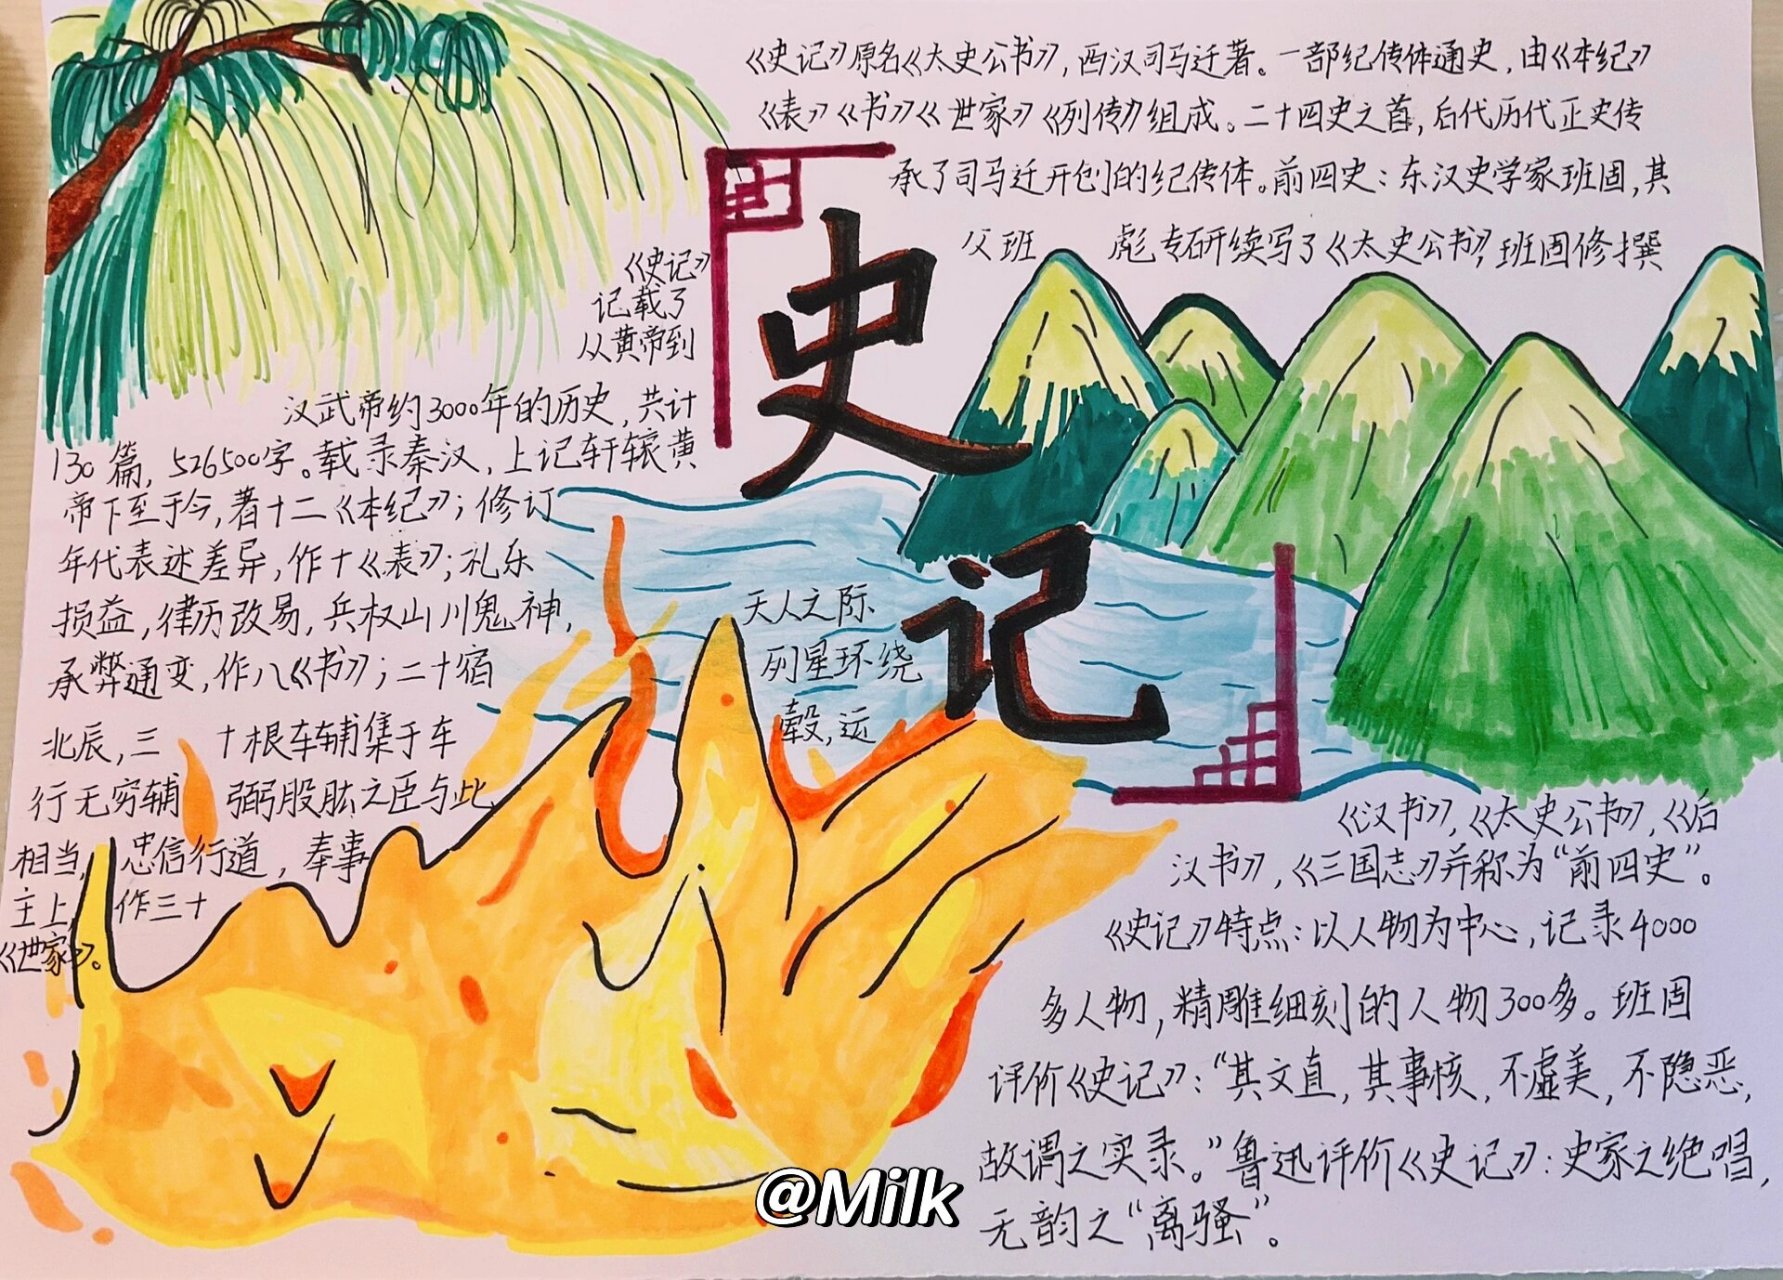 《史记》原名《太史公书》，西汉司马迁著。一部纪传体通史，由《本纪》
《表》《书》《世家》《列传》组成。二十四史之首，后代历代正史传
承了司马迁开创的纪传体。前四史：东汉史学家班固，其
父班彪专研续写了《太史公书》，班固修撰
史
记
《史记》
记载了
从黄帝到
汉武帝约3000年的历史，共计
130篇，526500字。载录秦汉，上记轩辕黄
帝下至于今，著十二《本纪》；修订
年代表述差异，作十《表》；礼乐
损益，律历改易，兵权山川鬼神，
承弊通变，作八《书》；二十宿
北辰，三十根车辅集于车
行无穷辅弼股肱之臣与此
相当，忠信行道，奉事
主上，作三十
《世家》。
天人之际
列星环绕
毂，运
《汉书》，《太史公书》，《后
汉书》，《三国志》并称为“前四史”。
《史记》特点：以人物为中心，记录4000
多人物，精雕细刻的人物300多。班固
评价《史记》：“其文直，其事核，不虚美，不隐恶，
故谓之实录。”鲁迅评价《史记》：史家之绝唱，
无韵之“离骚”。
@Milk